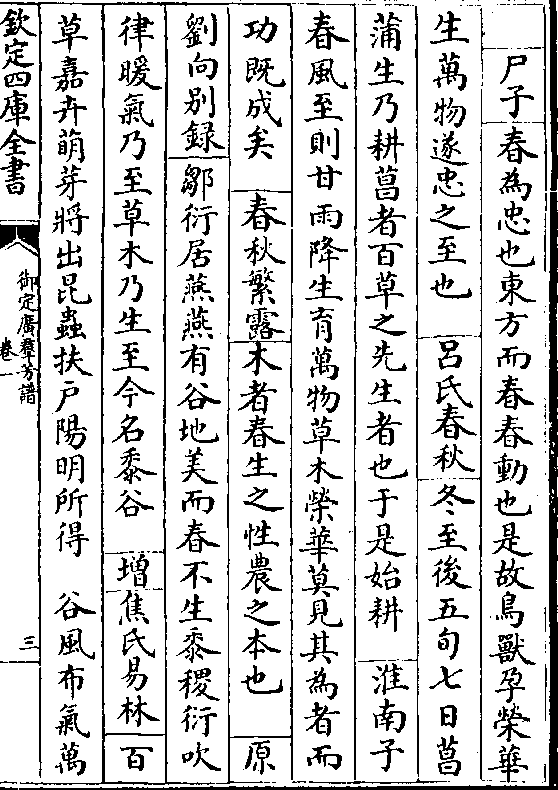 尸子春為忠也東方而春春動也是故鳥獸孕榮華
生萬物遂忠之至也　呂氏春秋冬至後五旬七日菖
蒲生乃耕菖者百草之先生者也于是始耕　淮南子
春風至則甘雨降生育萬物草木榮華莫見其為者而
功既成矣　春秋繁露木者春生之性農之本也　原
劉向别録鄒衍居燕燕有谷地美而春不生黍稷衍吹
律暖氣乃至草木乃生至今名黍谷　增焦氏易林百
草嘉卉萌芽將出昆蟲扶戶陽明所得　谷風布氣萬
欽定四庫全書
御定廣羣芳譜
卷一
三